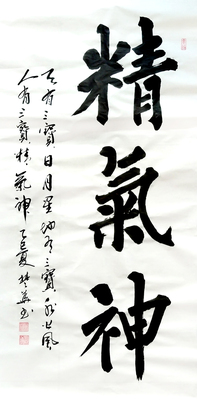 精氣神
天有三寶日月星地有三寶水火風
人有三寶精氣神乙巳夏